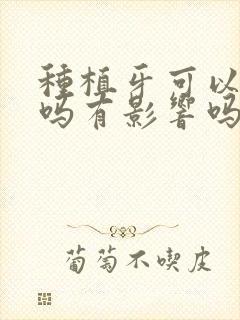 種植牙可以
吗有影響吗
葡萄不喫皮